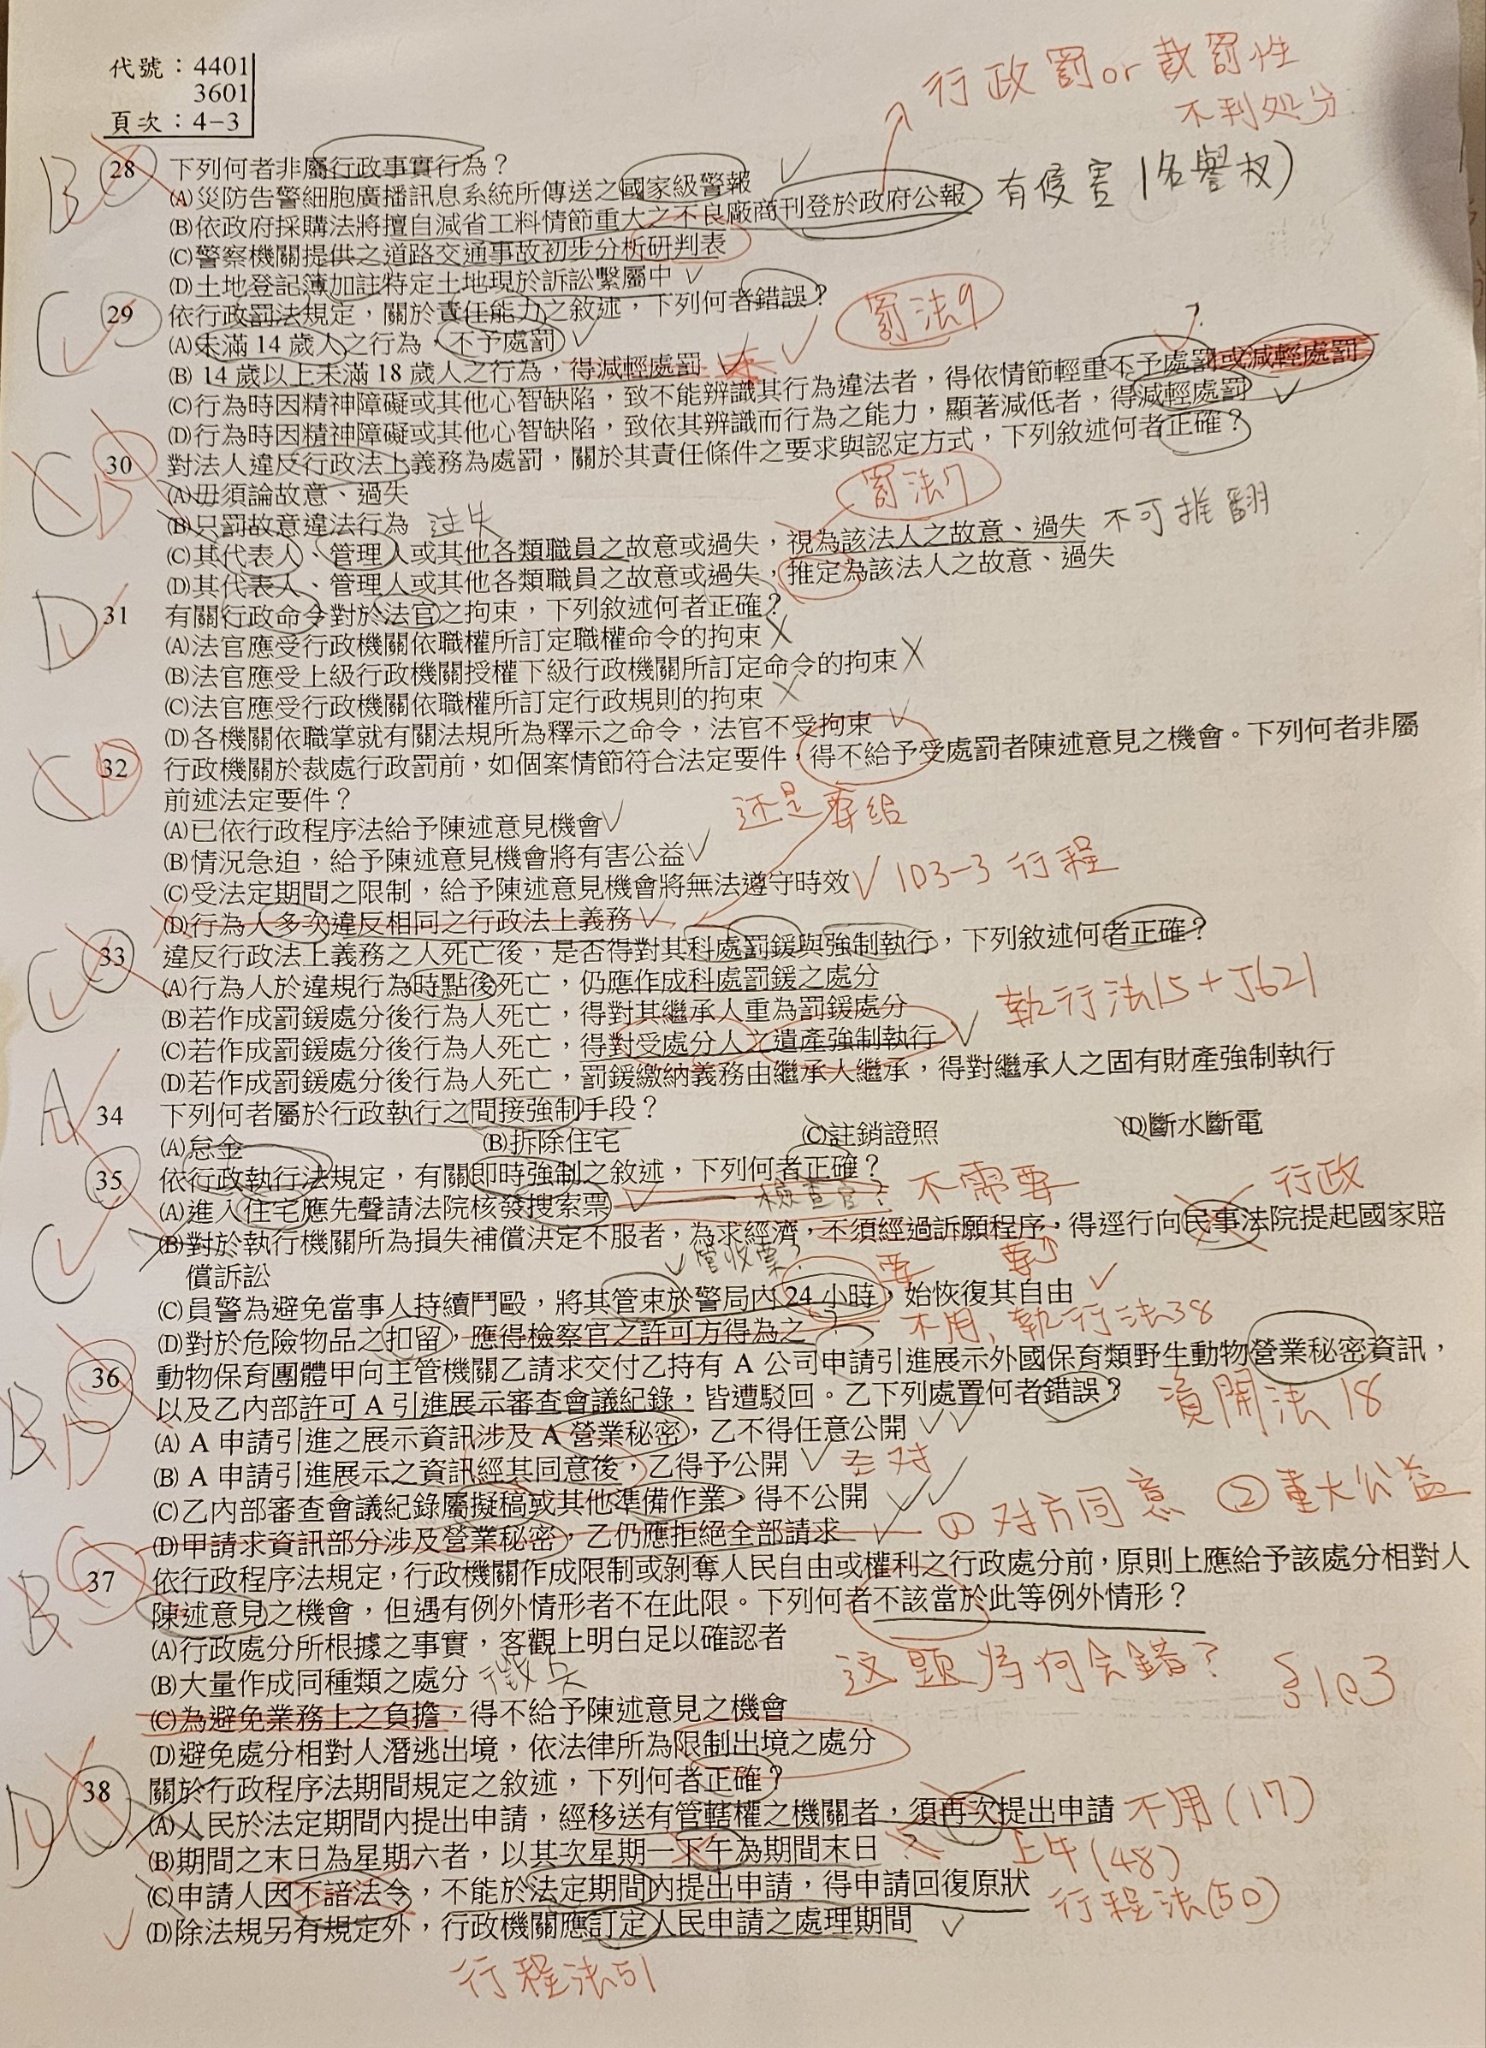 代號：4401
3601
頁次：4-3
行政罰or裁罰性
不利処分
B 28 下列何者非屬行政事實行為？
(A)災防告警細胞廣播訊息系統所傳送之國家級警報
(B)依政府採購法將擅自減省工料情節重大之不良廠商刊登於政府公報 有侵害(名譽权)
(C)警察機關提供之道路交通事故初步分析研判表
(D)土地登記簿加註特定土地現於訴訟繫屬中
C 29 依行政罰法規定，關於責任能力之敘述，下列何者錯誤？ 罰法9
(A)未滿 14 歲人之行為，不予處罰
(B) 14 歲以上未滿 18 歲人之行為，得減輕處罰
(C)行為時因精神障礙或其他心智缺陷，致不能辨識其行為違法者，得依情節輕重不予處罰或減輕處罰 ?
(D)行為時因精神障礙或其他心智缺陷，致依其辨識而行為之能力，顯著減低者，得減輕處罰
C D 30 對法人違反行政法上義務為處罰，關於其責任條件之要求與認定方式，下列敘述何者正確？
(A)毋須論故意、過失 罰法7
(B)只罰故意違法行為 过失
(C)其代表人、管理人或其他各類職員之故意或過失，視為該法人之故意、過失 不可推翻
(D)其代表人、管理人或其他各類職員之故意或過失，推定為該法人之故意、過失
D 31 有關行政命令對於法官之拘束，下列敘述何者正確？
(A)法官應受行政機關依職權所訂定職權命令的拘束
(B)法官應受上級行政機關授權下級行政機關所訂定命令的拘束
(C)法官應受行政機關依職權所訂定行政規則的拘束
(D)各機關依職掌就有關法規所為釋示之命令，法官不受拘束
C D 32 行政機關於裁處行政罰前，如個案情節符合法定要件，得不給予受處罰者陳述意見之機會。下列何者非屬
前述法定要件？
(A)已依行政程序法給予陳述意見機會 还是要給
(B)情況急迫，給予陳述意見機會將有害公益
(C)受法定期間之限制，給予陳述意見機會將無法遵守時效 103-3 行程
(D)行為人多次違反相同之行政法上義務
C 33 違反行政法上義務之人死亡後，是否得對其科處罰鍰與強制執行，下列敘述何者正確？
(A)行為人於違規行為時點後死亡，仍應作成科處罰鍰之處分
(B)若作成罰鍰處分後行為人死亡，得對其繼承人重為罰鍰處分 執行法15+J621
(C)若作成罰鍰處分後行為人死亡，得對受處分人之遺產強制執行
(D)若作成罰鍰處分後行為人死亡，罰鍰繳納義務由繼承人繼承，得對繼承人之固有財產強制執行
A 34 下列何者屬於行政執行之間接強制手段？
(A)怠金 (B)拆除住宅 (C)註銷證照 (D)斷水斷電
C 35 依行政執行法規定，有關即時強制之敘述，下列何者正確？
(A)進入住宅應先聲請法院核發搜索票 檢查官? 不需要 行政
(B)對於執行機關所為損失補償決定不服者，為求經濟，不須經過訴願程序，得逕行向民事法院提起國家賠
償訴訟 管收票? 要 要
(C)員警為避免當事人持續鬥毆，將其管束於警局內 24 小時，始恢復其自由
(D)對於危險物品之扣留，應得檢察官之許可方得為之 ? 不用，執行法38
B D 36 動物保育團體甲向主管機關乙請求交付乙持有 A 公司申請引進展示外國保育類野生動物營業秘密資訊，
以及乙內部許可 A 引進展示審查會議紀錄，皆遭駁回。乙下列處置何者錯誤？ 資開法 18
(A) A 申請引進之展示資訊涉及 A 營業秘密，乙不得任意公開
(B) A 申請引進展示之資訊經其同意後，乙得予公開
(C)乙內部審查會議紀錄屬擬稿或其他準備作業，得不公開
(D)甲請求資訊部分涉及營業秘密，乙仍應拒絕全部請求 ①对方同意 ②重大公益
B C 37 依行政程序法規定，行政機關作成限制或剝奪人民自由或權利之行政處分前，原則上應給予該處分相對人
陳述意見之機會，但遇有例外情形者不在此限。下列何者不該當於此等例外情形？
(A)行政處分所根據之事實，客觀上明白足以確認者
(B)大量作成同種類之處分 这題為何会錯？ §103
(C)為避免業務上之負擔，得不給予陳述意見之機會
(D)避免處分相對人潛逃出境，依法律所為限制出境之處分
D 38 關於行政程序法期間規定之敘述，下列何者正確？
(A)人民於法定期間內提出申請，經移送有管轄權之機關者，須再次提出申請 不用(17)
(B)期間之末日為星期六者，以其次星期一下午為期間末日 ? 上午(48)
(C)申請人因不諳法令，不能於法定期間內提出申請，得申請回復原狀 行程法(50)
(D)除法規另有規定外，行政機關應訂定人民申請之處理期間
行程法51